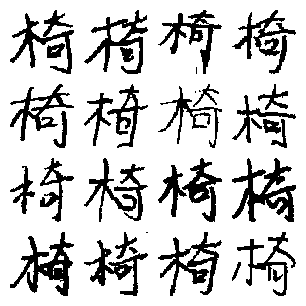 椅椅椅椅
椅椅椅椅
椅椅椅椅
椅椅椅椅